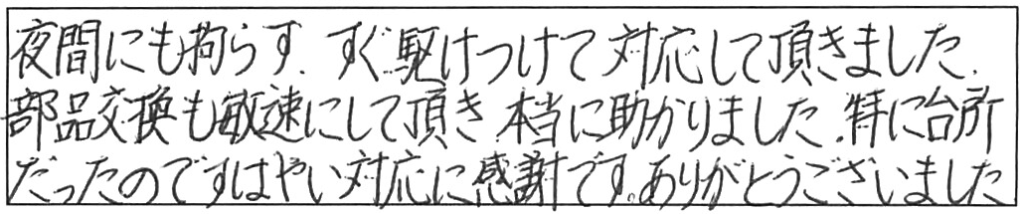 夜間にも拘らず、すぐ駆けつけて対応して頂きました。
部品交換も敏速にして頂き、本当に助かりました。特に台所
だったのですはやい対応に感謝です。ありがとうございました